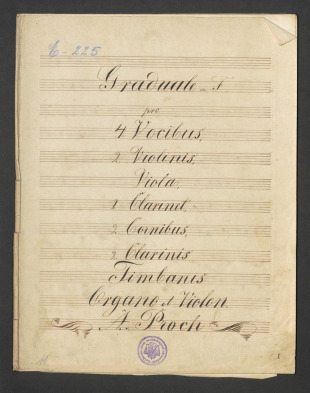 C-225
Graduale in F.
pro
4 Vocibus,
2 Violinis,
Viola,
1 Clarinet,
2 Cornibus,
2 Clarinis
Timbanis
Organo et Violon.
Proch